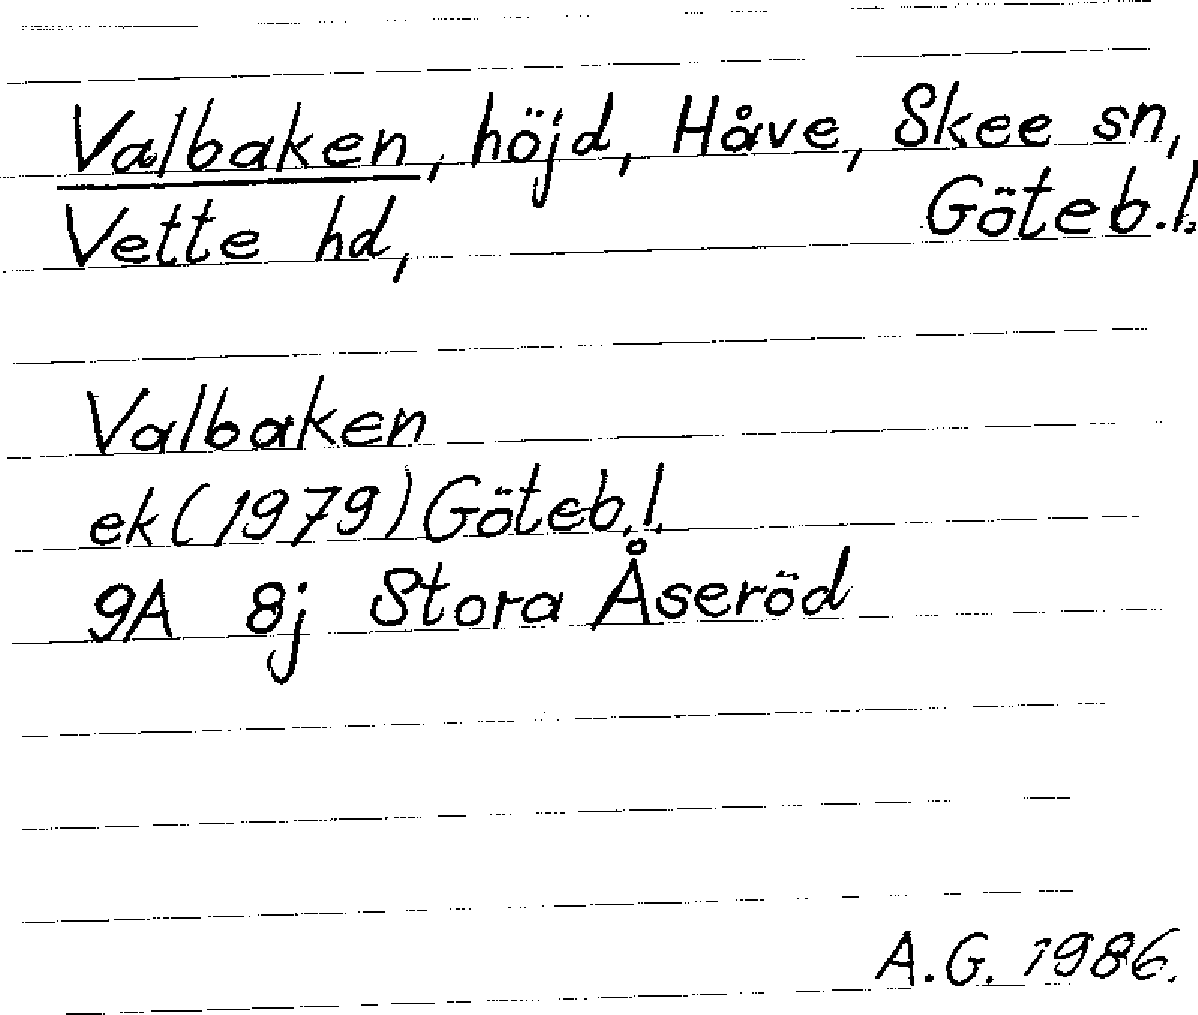 Valbaken, höjd, Håve, Skee sn,
Vette hd, Göteb.l.
Valbaken
ek (1979) Göteb.l.
9A 8j Stora Åseröd
A.G. 1986.